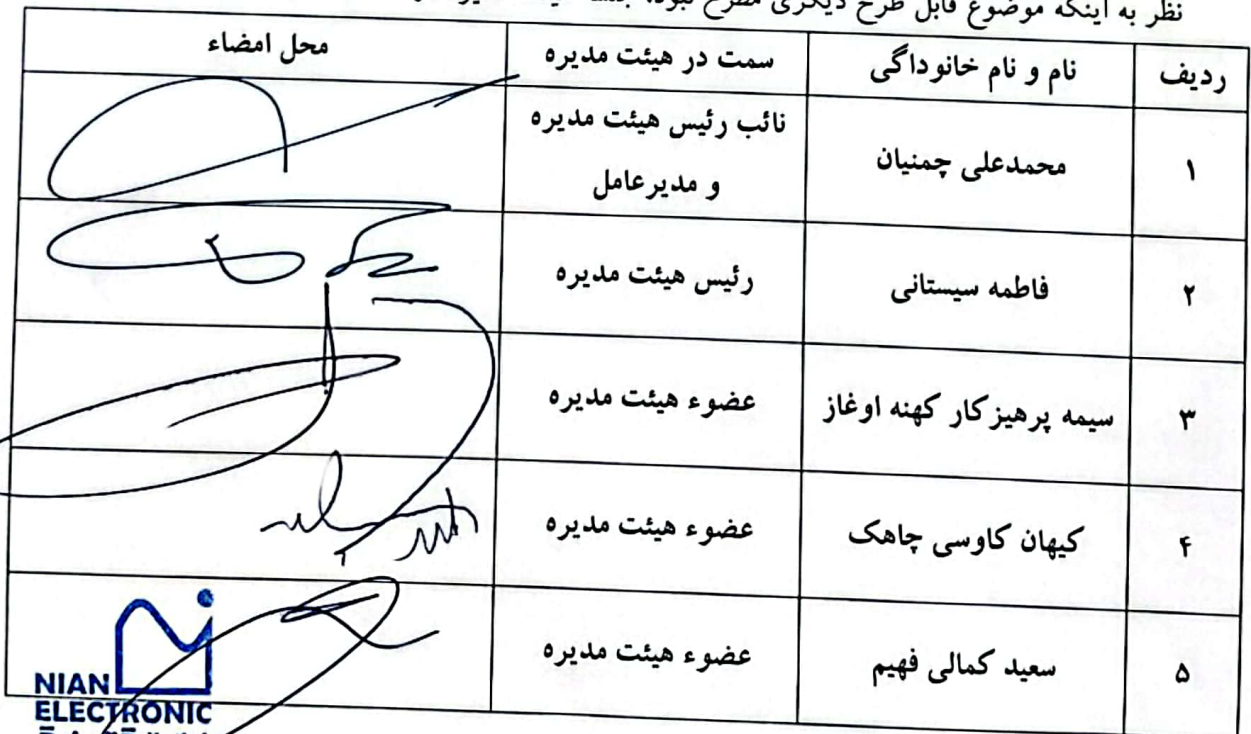 نظر به اینکه موضوع قابل طرح دیگری مطرح نبود، جلسه
ردیف نام و نام خانوداگی سمت در هیئت مدیره محل امضاء
۱ محمدعلی چمنیان نائب رئیس هیئت مدیره
و مدیرعامل
۲ فاطمه سیستانی رئیس هیئت مدیره
۳ سیمه پرهیزکار کهنه اوغاز عضوء هیئت مدیره
۴ کیهان کاوسی چاهک عضوء هیئت مدیره
۵ سعید کمالی فهیم عضوء هیئت مدیره
NIAN
ELECTRONIC